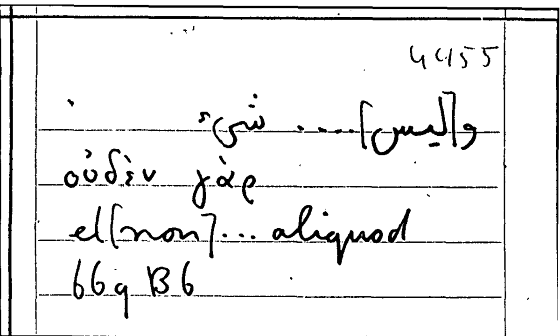 4455
و[ليس] .... شىء
οὐδὲν γὰρ
el[non]... aliquod
66a B6